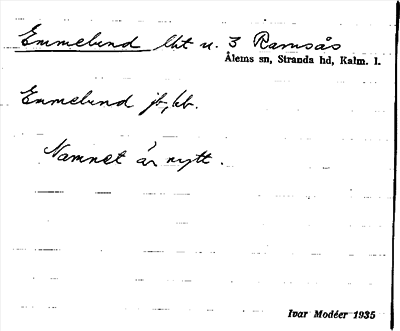 Emmelund lht u. 3 Ramsås
Ålems sn, Stranda hd, Kalm. l.
Emmelund jb, kb.
Namnet är nytt.
Ivar Modéer 1935